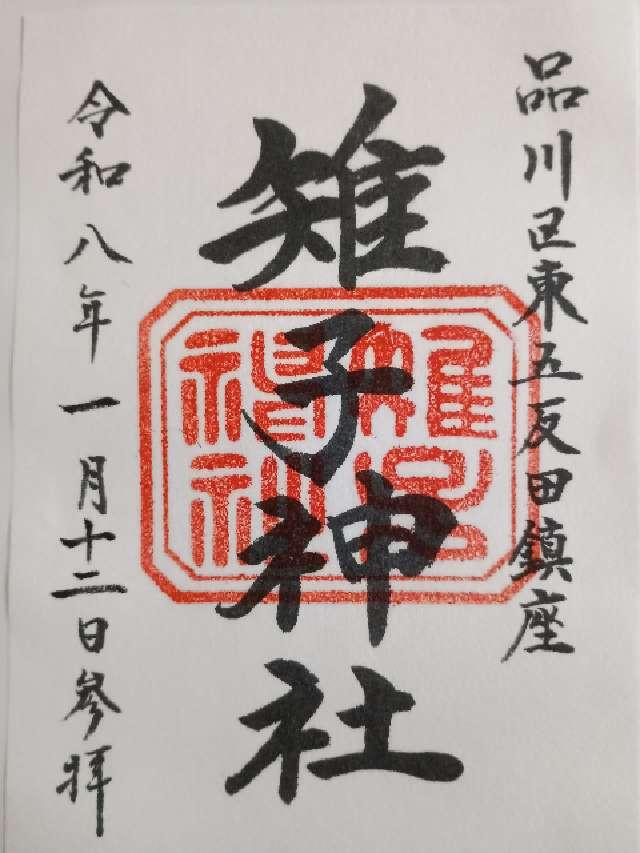 品川区東五反田鎮座
雉子神社
令和八年一月十二日参拝